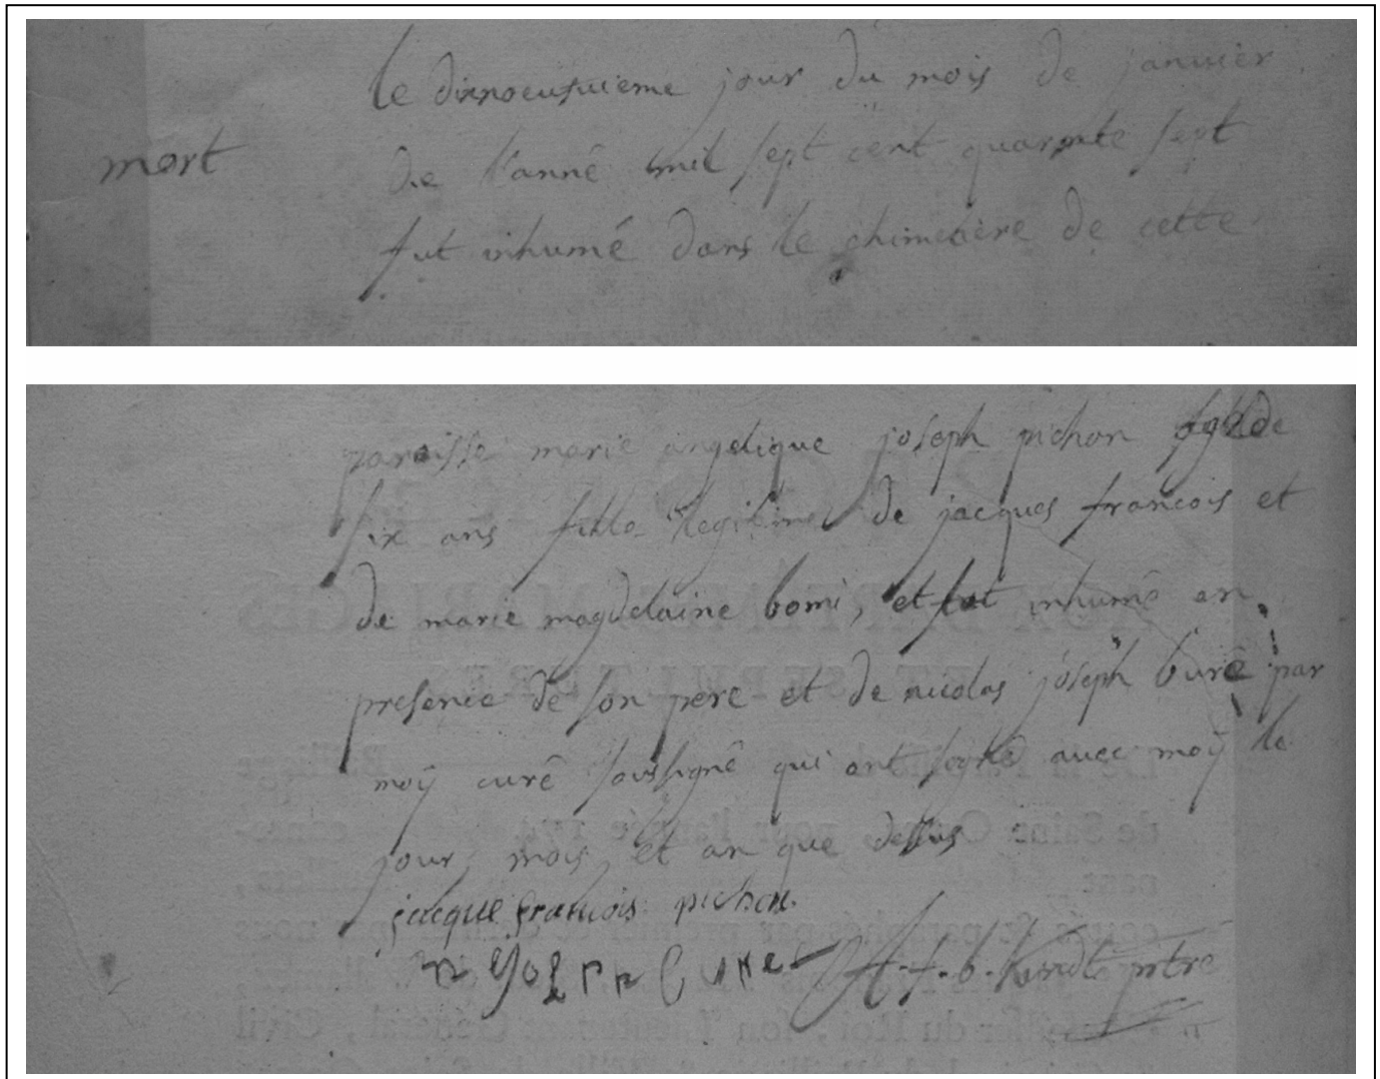 le dixneufvieme jour du mois de janvier
mort
de l'anné mil sept cent quarante sept
fut inhumé dans le chimetière de cette
paroisse marie angelique joseph pichon agée de
six ans fille legitime de jacques francois et
de marie magdelaine bomi, et fut inhumé en
presence de son pere et de nicolas joseph buré par
moÿ curé soussigné qui ont signé avec moÿ le
jour, mois, et an que dessus
jacque francois pichon.
n Joseph